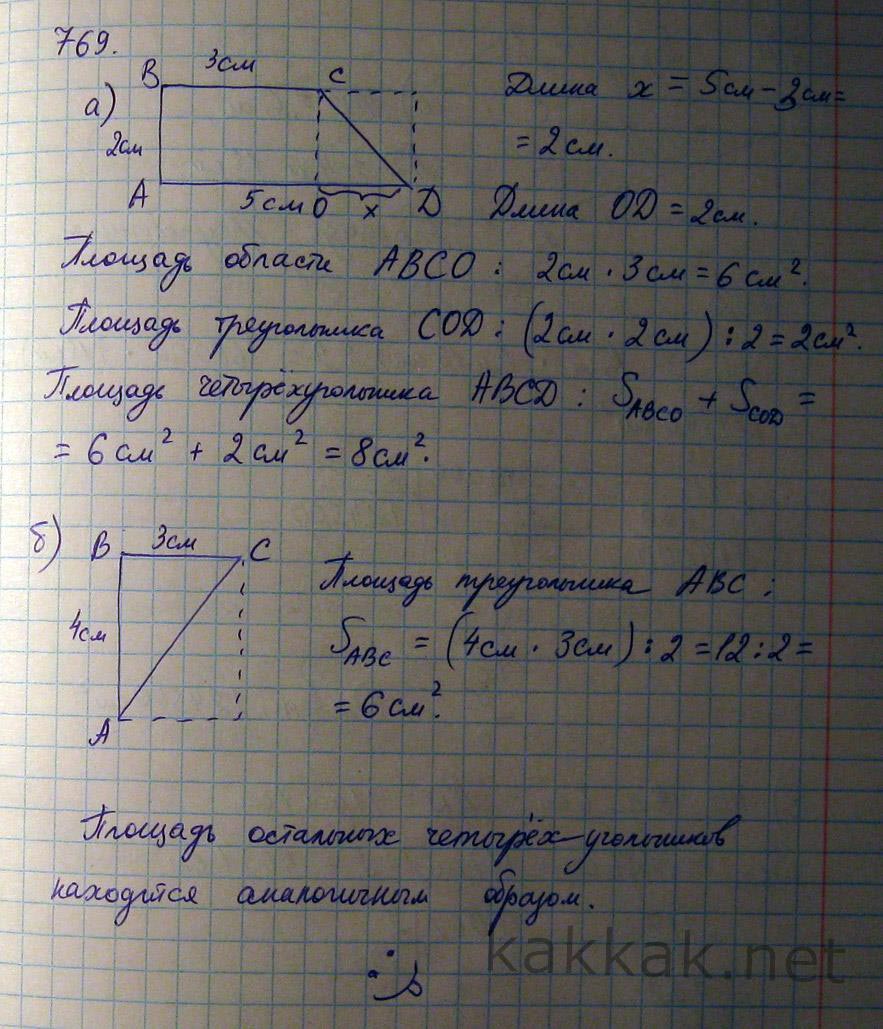 769.
3см
В С
а)
2см
А 5см О х D
Длина х = 5см - 3см =
= 2см.
Длина OD = 2см.
Площадь области АВСО : 2см · 3см = 6см².
Площадь треугольника СОD : (2см · 2см) : 2 = 2см².
Площадь четырёхугольника АВСD : S_ABCO + S_COD =
= 6см² + 2см² = 8см².
б) В 3см С
4см
А
Площадь треугольника АВС :
S_ABC = (4см · 3см) : 2 = 12 : 2 =
= 6см².
Площадь остальных четырёх-угольников
находится аналогичным образом.
kakkak.net